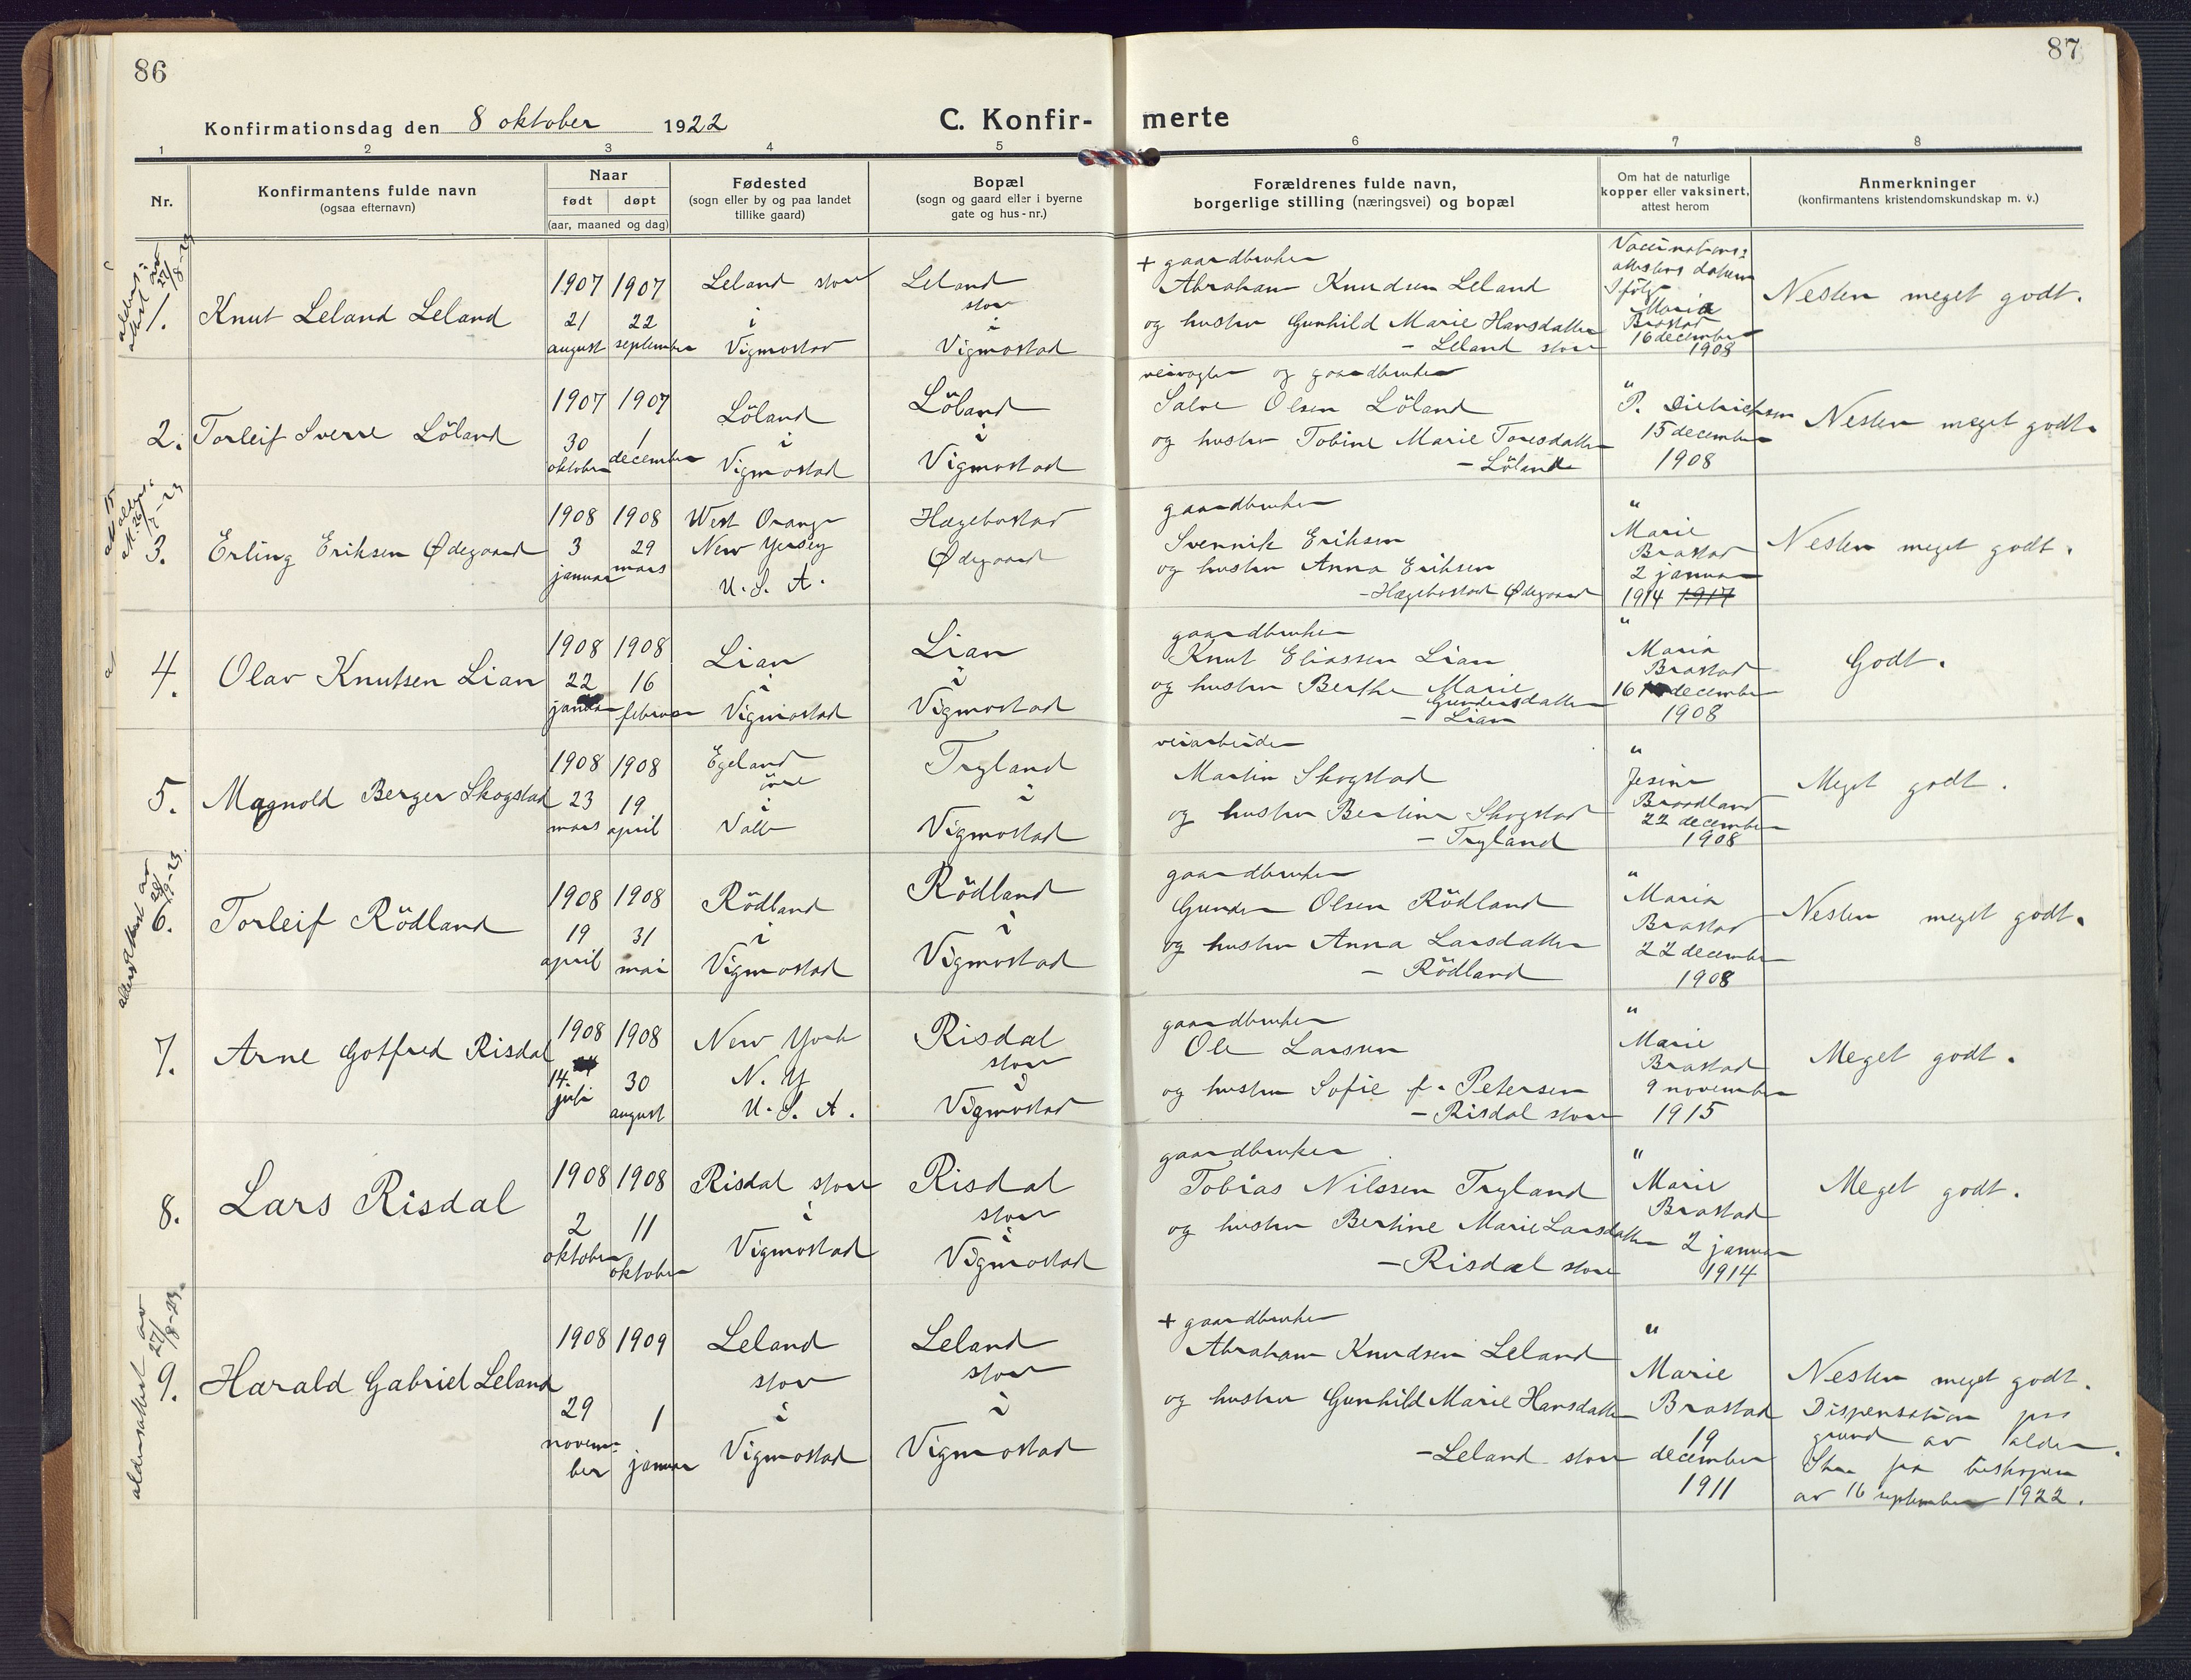 86
87
Konfirmationsdag den 8 oktober 1922
C. Konfir- merte
1 2 3 4 5 6 7 8
Nr.
Konfirmantens fulde navn
(ogsaa efternavn)
Naar
født døpt
(aar, maaned og dag)
Fødested
(sogn eller by og paa landet
tillike gaard)
Bopæl
(sogn og gaard eller i byerne
gate og hus-nr.)
Forældrenes fulde navn,
borgerlige stilling (næringsvei) og bopæl
Om hat de naturlige
kopper eller vaksinert,
attest herom
Anmerkninger
(konfirmantens kristendomskundskap m. v.)
27/8-23
1.
Knut Leland Leland
1907
21
august
1907
22
september
Leland store
i
Vigmostad
Leland
store
i
Vigmostad
+ gaardbruker
Abraham Knudsen Leland
og hustru Gunhild Marie Hansdatter
- Leland store
Vaccinations-
attestens datum
Ifölge
Maria
Brastad
16 december
1908
Nesten meget godt.
2.
Torleif Sverre Löland
1907
30
oktober
1907
1
december
Löland
i
Vigmostad
Löland
i
Vigmostad
veivogter og gaardbruker
Salve Olsen Löland
og hustru Tobine Marie Toresdatter
- Löland
"
P. Dietrichson
15 december
1908
Nesten meget godt.
3.
Erling Eriksen Ødegaard
1908
3
januar
1908
29
mars
West Orange
New Yersey
U. S. A.
Hægebostad
Ødegaard
gaardbruker
Svennik Eriksen
og hustru Anna Eriksen
- Hægebostad Ødegaard
"
Marie
Brastad
2 januar
1914 1917
Nesten meget godt.
4.
Olav Knutsen Lian
1908
22
januar
1908
16
februar
Lian
i
Vigmostad
Lian
i
Vigmostad
gaardbruker
Knut Eliassen Lian
og hustru Berthe Marie
Gundersdatter
- Lian
"
Maria
Brastad
16 december
1908
Godt.
5.
Magnold Berger Skogstad
1908
23
mars
1908
19
april
Egeland
i
Valle
Tryland
i
Vigmostad
veiarbeider
Martin Skogstad
og hustru Bertine Skogstad
- Tryland
"
Jesine
Braadland
22 december
1908
Meget godt.
aldersattest av
28/9-23.
6.
Torleif Rödland
1908
19
april
1908
31
mai
Rödland
i
Vigmostad
Rödland
i
Vigmostad
gaardbruker
Gunder Olsen Rödland
og hustru Anna Larsdatter
- Rödland
"
Maria
Brastad
22 december
1908
Nesten meget godt.
7.
Arne Gotfred Risdal
1908
14.
juli
1908
30
august
New York
N. Y
U. S. A.
Risdal
store
i
Vigmostad
gaardbruker
Ole Larsen
og hustru Sofie f. Petersen
- Risdal store
"
Marie
Brastad
9 november
1915
Meget godt.
8.
Lars Risdal
1908
2
oktober
1908
11
oktober
Risdal store
i
Vigmostad
Risdal
store
i
Vigmostad
gaardbruker
Tobias Nilssen Tryland
og hustru Bertine Marie Larsdatter
- Risdal store
"
Marie
Brastad
2 januar
1914
Meget godt.
aldersattest av
27/8-23.
9.
Harald Gabriel Leland
1908
29
novem-
ber
1909
1
januar
Leland
store
i
Vigmostad
Leland
store
i
Vigmostad
+ gaardbruker
Abraham Knudsen Leland
og hustru Gunhild Marie Hansdatter
- Leland store
"
Marie
Brastad
19
december
1911
Nesten meget godt.
Dispensation paa
grund av alder.
fra biskopen
av 16 september 1922.